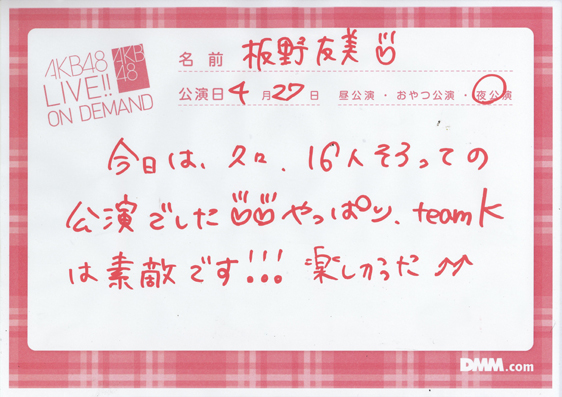 AKB48
LIVE!!
ON DEMAND
AKB
48
名前 板野友美
公演日 4月27日 昼公演・おやつ公派・夜公演
今日は、久々、16人そろっての
公演でした やっぱり、teamK
は素敵です!!! 楽しかった
DMM.com